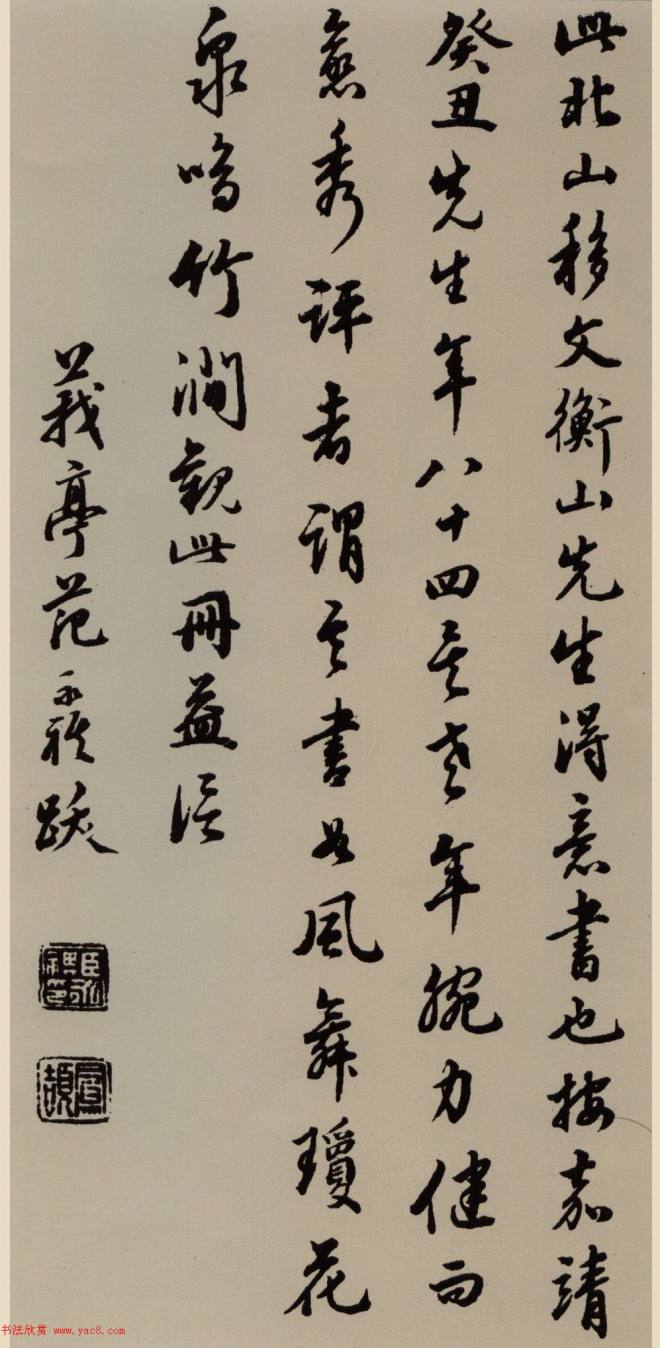 此北山移文衡山先生得意書也按嘉靖
癸丑先生年八十四矣老年腕力健而
愈秀評者謂其書如風舞瓊花
泉鳴竹澗觀此冊益信
莪亭范永祺跋
臣永祺印
鳳頡
书法欣赏 www.yac8.com